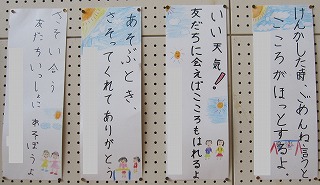 けんかした時、ごめんね言うと
こころがほっとするよ。
いい天気!
友だちに会えばこころもはれるよ
あそぶとき、
さそってくれてありがとう
さそい合う
友だちいっしょに あそぼうよ